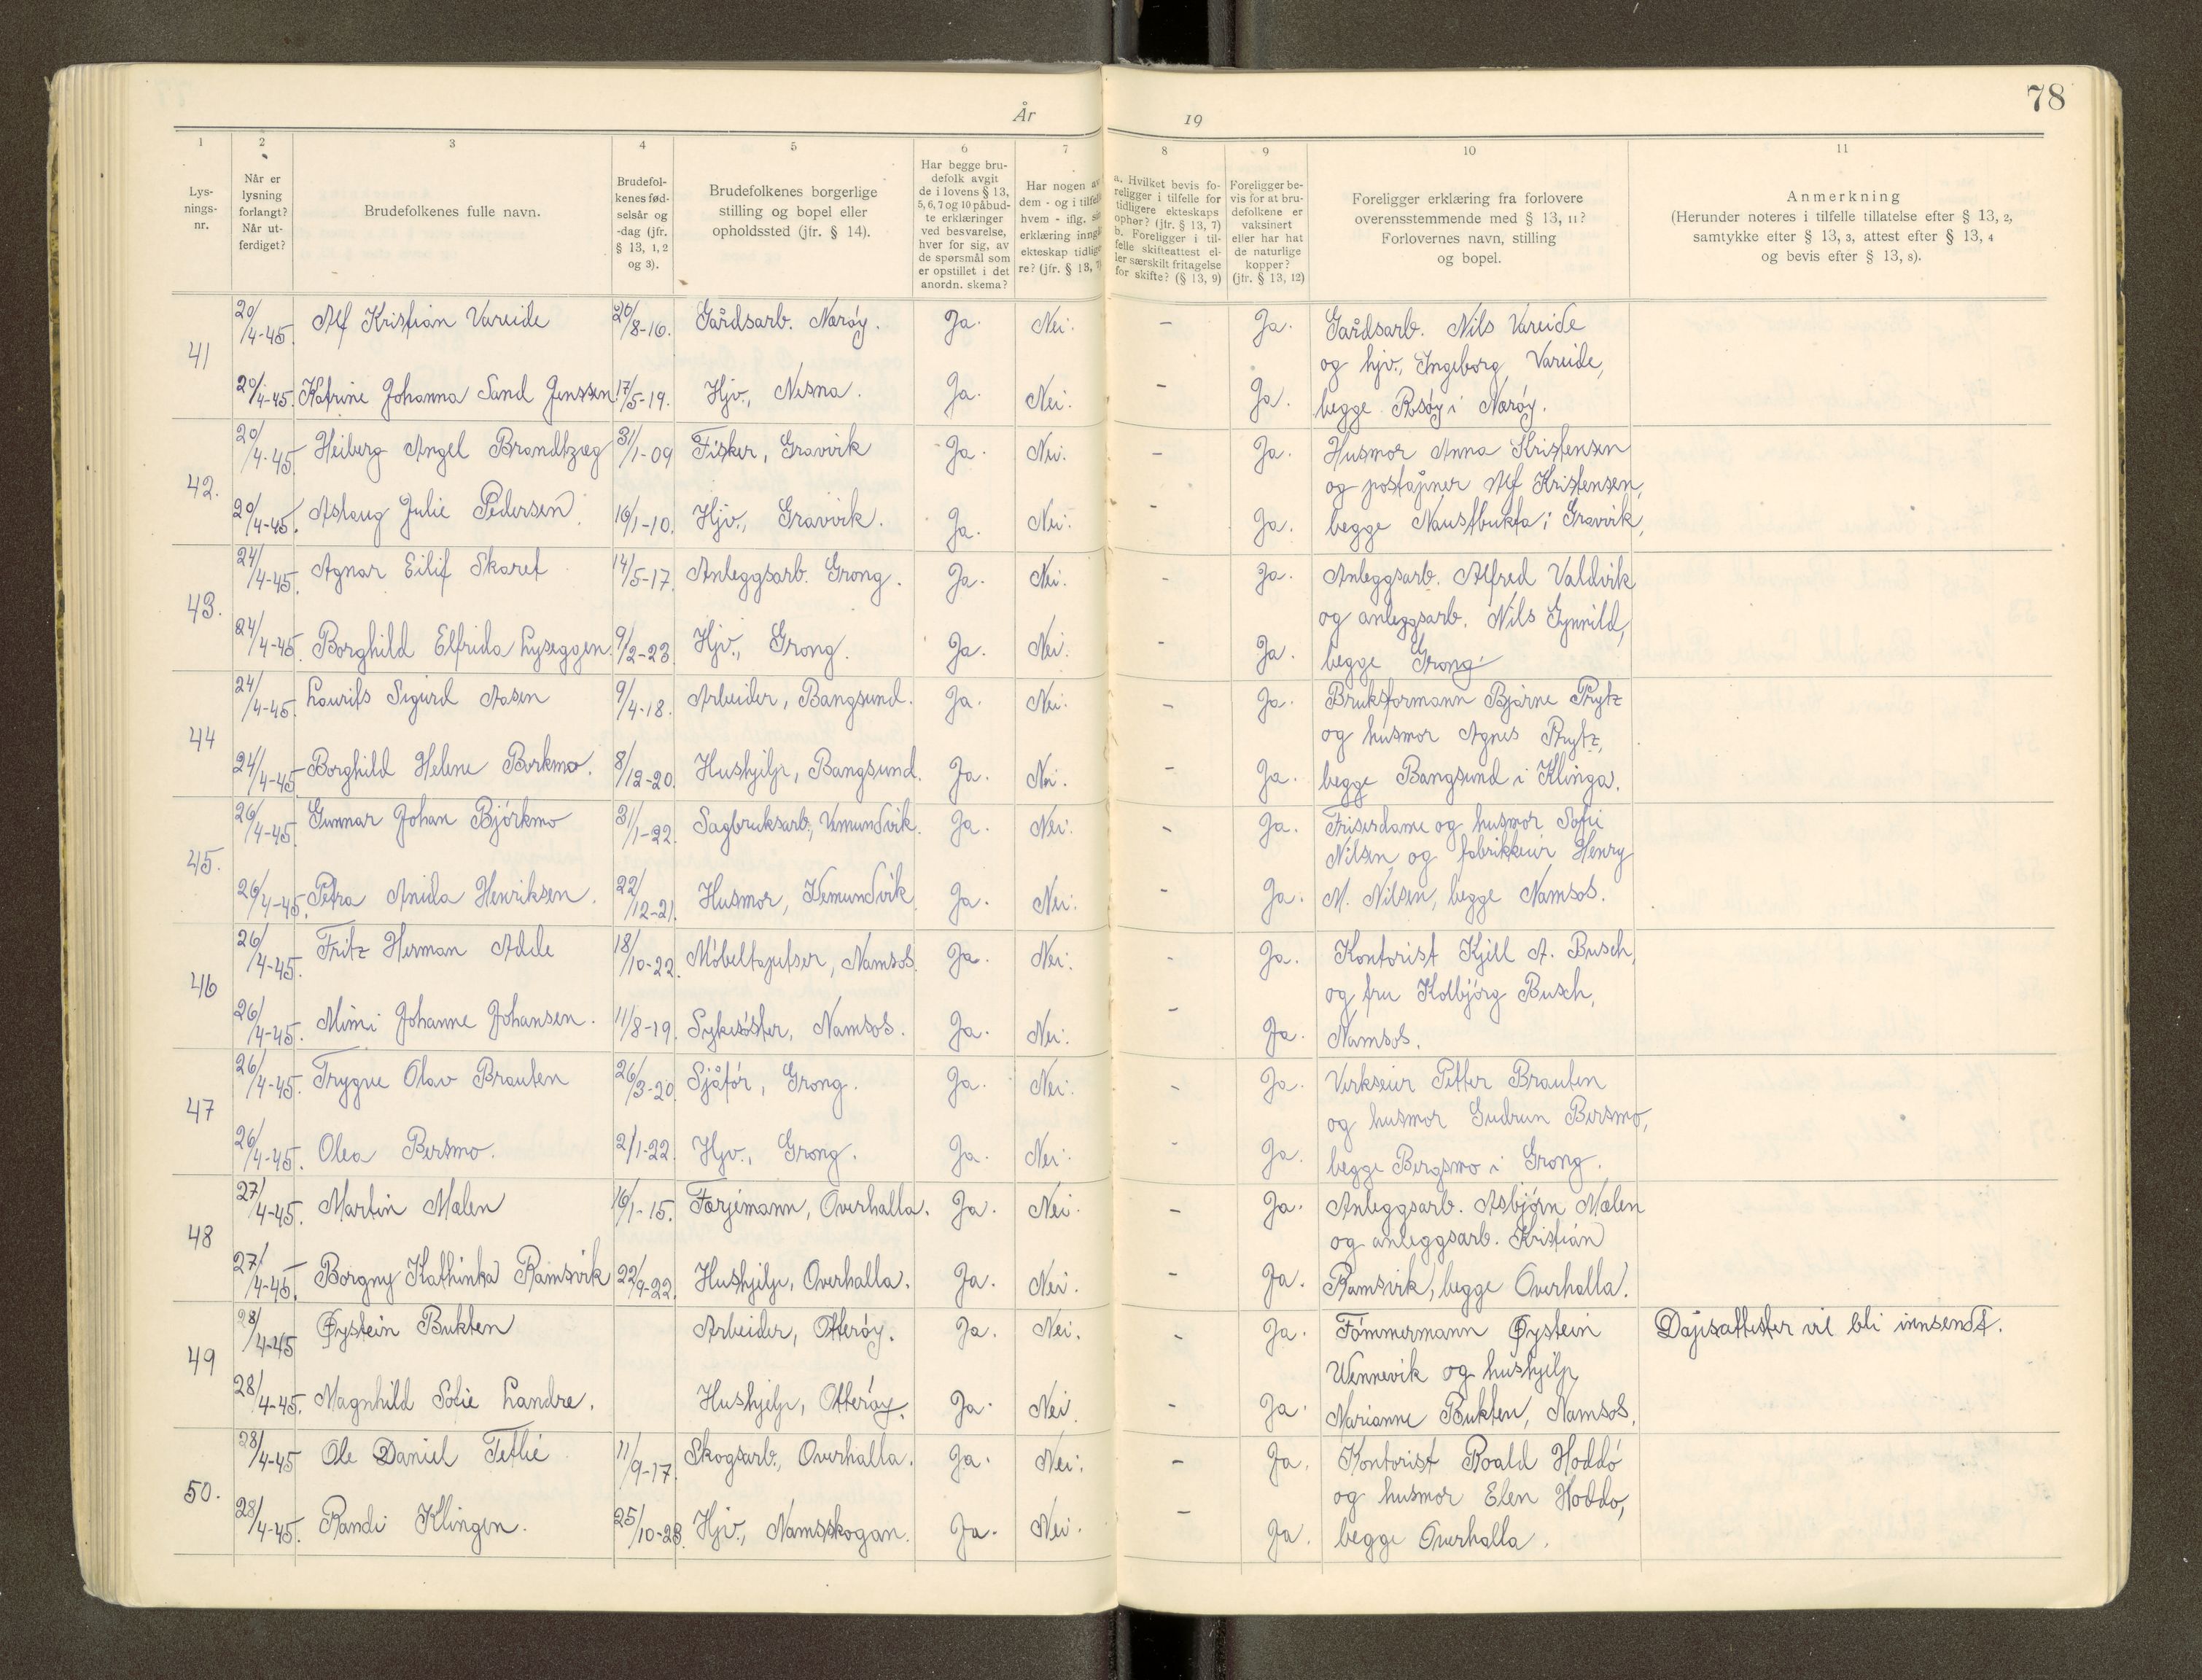 78
År 19
1 2 3 4 5 6 7 8 9 10 11
Lys-
nings-
nr.
Når er
lysning
forlangt?
Når ut-
ferdiget?
Brudefolkenes fulle navn.
Brudefol-
kenes fød-
selsår og
-dag (jfr.
§ 13, 1, 2
og 3).
Brudefolkenes borgerlige
stilling og bopel eller
opholdssted (jfr. § 14).
Har begge bru-
defolk avgit
de i lovens § 13,
5, 6, 7 og 10 påbud-
te erklæringer
ved besvarelse,
hver for sig, av
de spørsmål som
er opstillet i det
anordn. skema?
Har nogen av
dem - og i tilfelle
hvem - iflg. sin
erklæring inngått
ekteskap tidlige-
re? (jfr. § 13, 7)
a. Hvilket bevis fo-
religger i tilfelle for
tidligere ekteskaps
ophør? (jfr. § 13, 7)
b. Foreligger i til-
felle skifteattest el-
ler særskilt fritagelse
for skifte? (§ 13, 9)
Foreligger be-
vis for at bru-
defolkene er
vaksinert
eller har hat
de naturlige
kopper?
(jfr. § 13, 12)
Foreligger erklæring fra forlovere
overensstemmende med § 13, 11?
Forlovernes navn, stilling
og bopel.
Anmerkning
(Herunder noteres i tilfelle tillatelse efter § 13, 2,
samtykke efter § 13, 3, attest efter § 13, 4
og bevis efter § 13, 8).
41
20/4-45. Alf Kristian Vareide 20/8-16. Gårdsarb. Nærøy. Ja. Nei. - Ja. Gårdsarb. Nils Vareide
og hjv., Ingeborg Vareide,
20/4-45. Katrine Johanna Sand Jenssen 17/5-19. Hjv., Nesna. Ja. Nei. - Ja. begge Rosøy i Nærøy.
42.
20/4-45. Heiberg Angel Brandtzæg 31/1-09 Fisker, Gravvik Ja. Nei. - Ja. Husmor Anna Kristensen
og poståpner Alf Kristensen,
20/4-45. Aslaug Julie Pedersen 16/1-10. Hjv., Gravvik. Ja. Nei. - Ja. begge Naustbukta i Gravvik,
43.
24/4-45. Agnar Eilif Skaret 14/5-17. Anleggsarb. Grong. Ja. Nei. - Ja. Anleggsarb. Alfred Valdvik
og anleggsarb. Nils Gynnild,
24/4-45. Borghild Elfrida Lyseggen. 9/2-23. Hjv., Grong. Ja. Nei. - Ja. begge Grong
44
24/4-45. Laurits Sigurd Aasen 9/4-18. Arbeider, Bangsund. Ja. Nei. - Ja. Bruksformann Bjarne Prytz
og husmor Agnes Prytz,
24/4-45 Borghild Helene Borkmo. 8/12-20. Hushjelp, Bangsund. Ja. Nei. - Ja. begge Bangsund i Klinga.
45.
26/4-45. Gunnar Johan Björkmo 31/1-22. Sagbruksarb., Vemundvik. Ja. Nei. - Ja. Friserdame og husmor Sofie
Nilsen og fabrikkeier Henry
26/4-45. Petra Anida Henriksen. 22/12-21. Husmor, Vemundvik Ja. Nei. - Ja. M. Nilsen, begge Namsos.
46
26/4-45. Fritz Herman Adde 18/10-22. Möbeltapetser, Namsos. Ja. Nei. - Ja. Kontorist Kjell A. Busch,
og fru Kolbjörg Busch,
26/4-45. Mimi Johanne Johansen. 11/8-19. Sykesöster, Namsos. Ja. Nei. - Ja. Namsos.
47
26/4-45. Trygve Olav Brauten 26/3-20. Sjåför, Grong. Ja. Nei. - Ja. Verkseier Petter Brauten
og husmor Gudrun Bersmo,
26/4-45. Olea Bersmo. 2/1-22. Hjv., Grong. Ja. Nei. - Ja. begge Bergsmo i Grong.
48
27/4-45. Martin Mælen 16/1-15. Færjemann, Overhalla. Ja. Nei. - Ja. Anleggsarb. Asbjörn Mælen
og anleggsarb. Kristian
27/4-45 Borgny Kathinka Ramsvik 22/9-22. Hushjelp, Overhalla. Ja. Nei. - Ja. Ramsvik, begge Overhalla.
49
28/4-45 Øystein Bukten Arbeider, Otterøy. Ja. Nei. - Ja. Tömmermann Øystein Dåpsattester vil bli innsendt.
Wennevik og hushjelp
28/4-45. Magnhild Sofie Landre. Hushjelp, Otterøy. Ja. Nei. - Ja. Marianne Bukten, Namsos.
50.
28/4-45 Ole Daniel Tetlie 11/9-17. Skogsarb., Overhalla. Ja. Nei. - Ja. Kontorist Roald Hoddö
og husmor Elen Hoddo,
28/4-45. Randi Klingen. 25/10-23. Hjv., Namsskogan. Ja. Nei. - Ja. begge Overhalla.